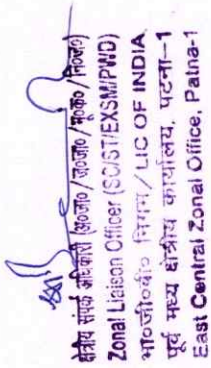 क्षेत्रीय संपर्क अधिकारी (अ०जा० / ज०जा० / भू०कर्म० / नि०ज०)
Zonal Liaison Officer (SC/ST/EXSM/PWD)
भा०जी०बी० निगम/LIC OF INDIA
पूर्व मध्य क्षेत्रीय कार्यालय, पटना-1
East Central Zonal Office, Patna-1